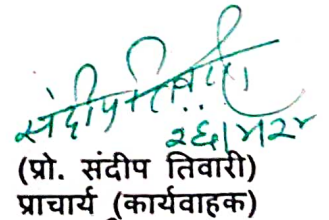 संदीप तिवारी
(प्रो. संदीप तिवारी)
प्राचार्य (कार्यवाहक)